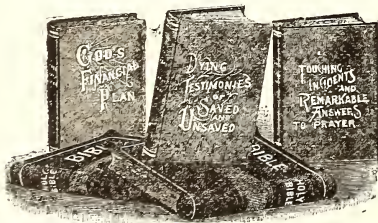 GOD'S
FINANCIAL
PLAN
DYING
TESTIMONIES
OF
SAVED
AND
UNSAVED
TOUCHING
INCIDENTS
AND
REMARKABLE
ANSWERS
TO PRAYER
HOLY
BIBLE
BIBLE
BIBLE
HOLY
BIBLE